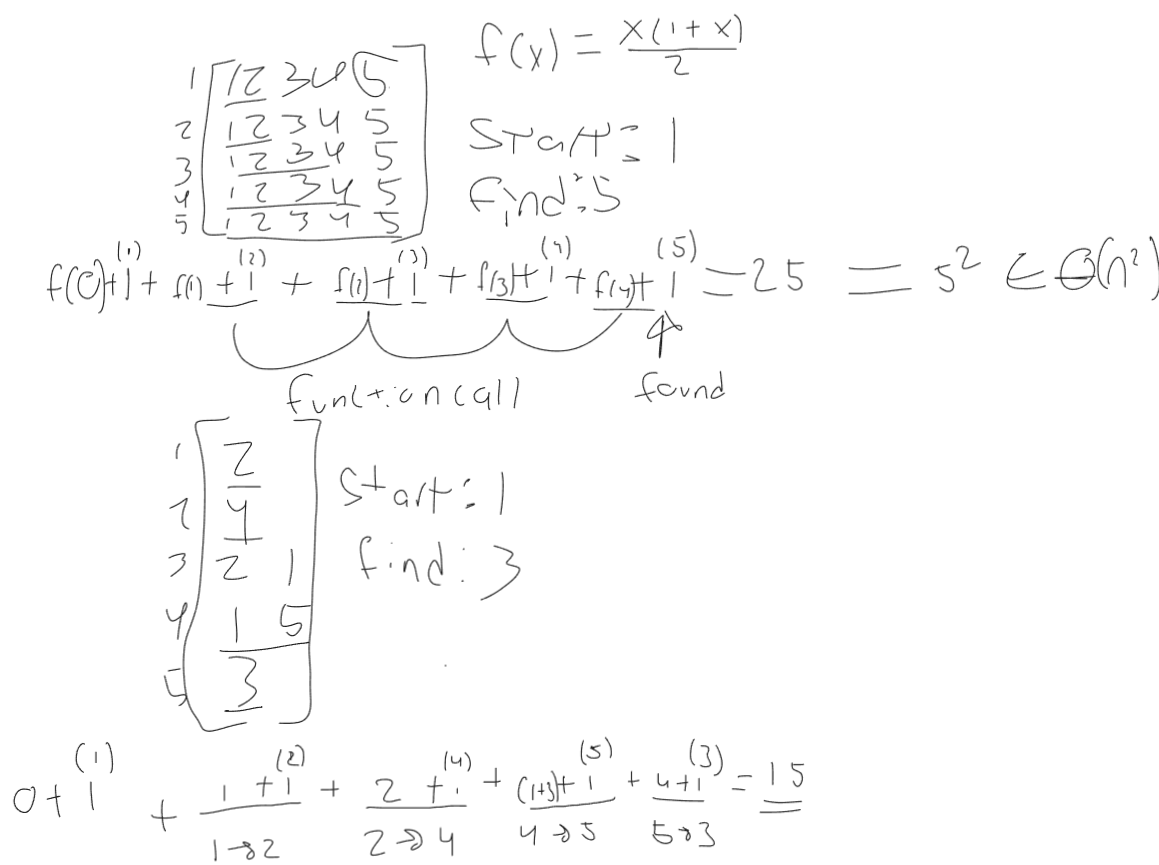 f(x) = x(1+x)/2
1 12345
2 12345
3 12345
4 12345
5 12345
Start: 1
find: 5
f(0)+1 (1) + f(1)+1 (2) + f(2)+1 (3) + f(3)+1 (4) + f(4)+1 (5) = 25 = 5² ∈ Θ(n²)
function call
found
1 2
2 4
3 2 1
4 1 5
5 3
Start: 1
find: 3
0+1 (1) + 1+1 (2) + 2+1 (4) + (1+3)+1 (5) + 4+1 (3) = 15
1→2 2→4 4→5 5→3